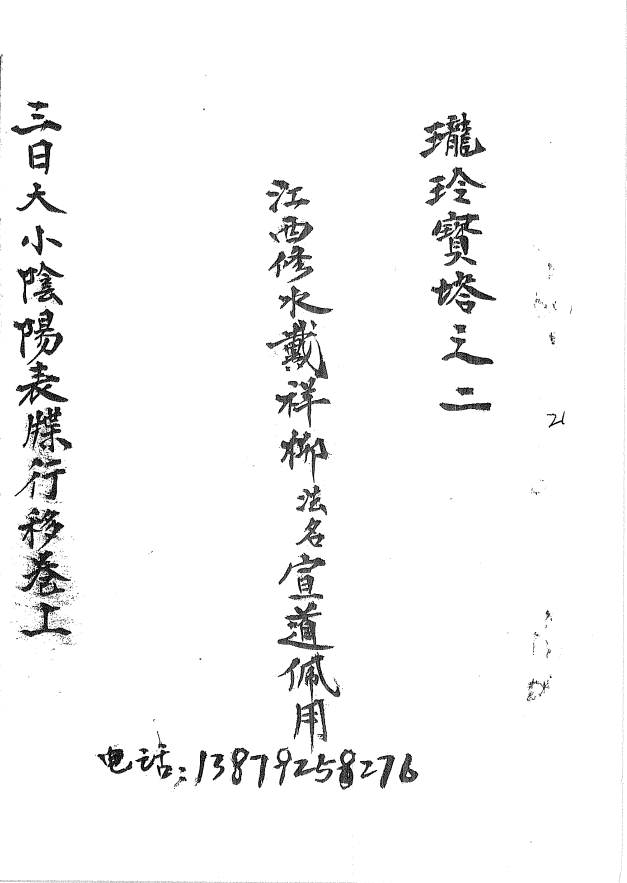 瓏玲寶塔之二
21
江西修水戴祥柳法名宣道佩用
三日大小陰陽表牒行移卷上
电话:13879258276